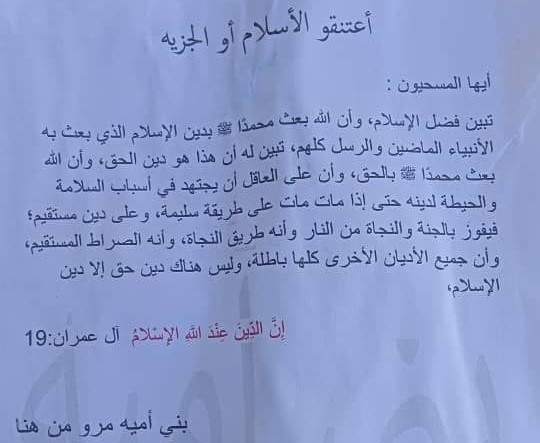 أعتنقو الأسلام أو الجزيه
أيها المسحيون :
تبين فضل الإسلام، وأن الله بعث محمدًا ﷺ بدين الإسلام الذي بعث به
الأنبياء الماضين والرسل كلهم، تبين له أن هذا هو دين الحق، وأن الله
بعث محمدًا ﷺ بالحق، وأن على العاقل أن يجتهد في أسباب السلامة
والحيطة لدينه حتى إذا مات مات على طريقة سليمة، وعلى دين مستقيم؛
فيفوز بالجنة والنجاة من النار وأنه طريق النجاة، وأنه الصراط المستقيم،
وأن جميع الأديان الأخرى كلها باطلة، وليس هناك دين حق إلا دين
الإسلام،
إِنَّ الدِّينَ عِنْدَ اللَّهِ الْإِسْلَامُ آل عمران:19
بني أميه مرو من هنا